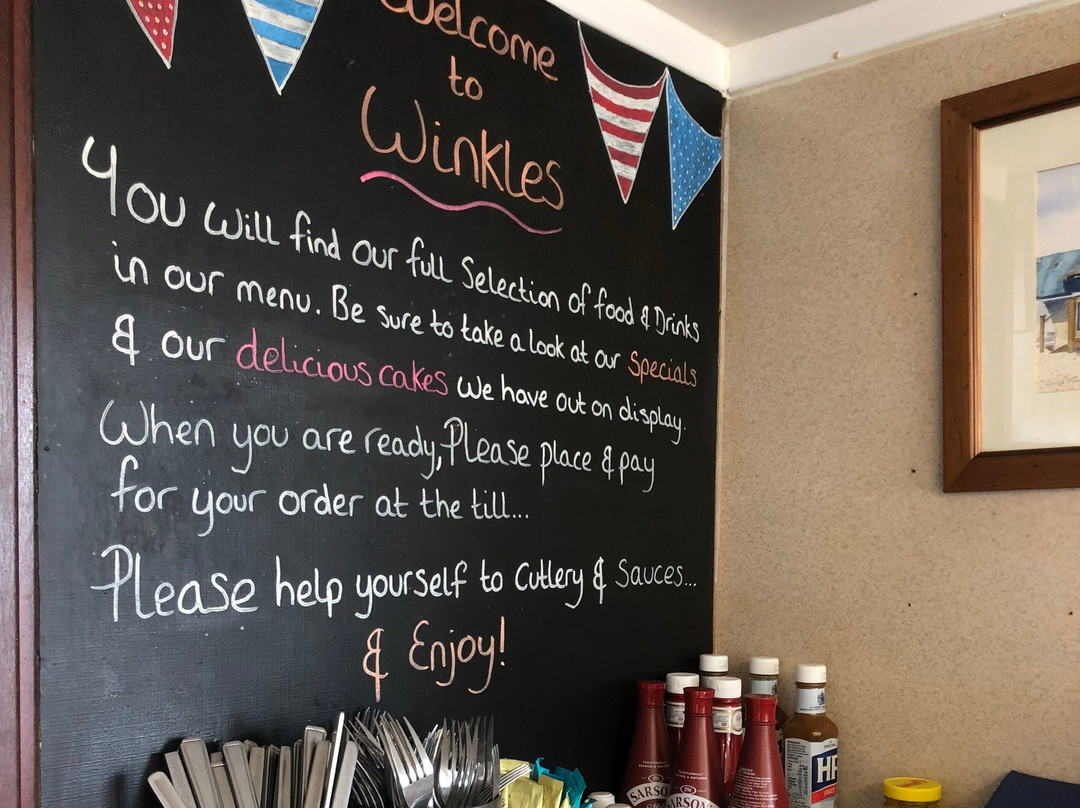 Welcome
to
Winkles
You will find our full Selection of food & Drinks
in our menu. Be sure to take a look at our Specials
& our delicious cakes we have out on display.
When you are ready, Please place & pay
for your order at the till...
Please help yourself to Cutlery & Sauces...
& Enjoy!
SARSON'S
SARSON'S
HP
SAUCE